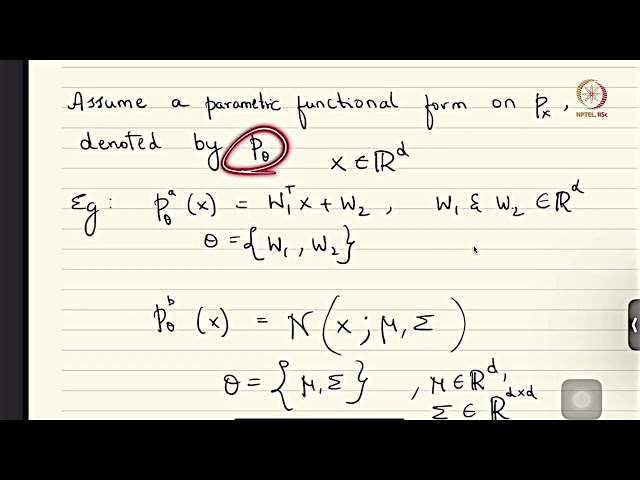 Assume a parametric functional form on pₓ,
NPTEL, IISc
denoted by p_θ x ∈ ℝᵈ
Eg: p_θᵃ (x) = W₁ᵀ x + W₂ , W₁ & W₂ ∈ ℝᵈ
θ = {W₁, W₂}
p_θᵇ (x) = N(x ; μ, Σ)
θ = {μ, Σ} , μ ∈ ℝᵈ,
Σ ∈ ℝᵈˣᵈ